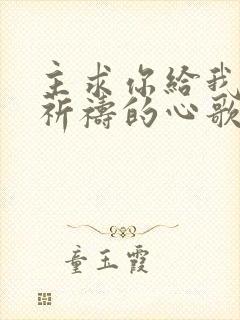 主求你给我
祈禱的心歌
童玉霞